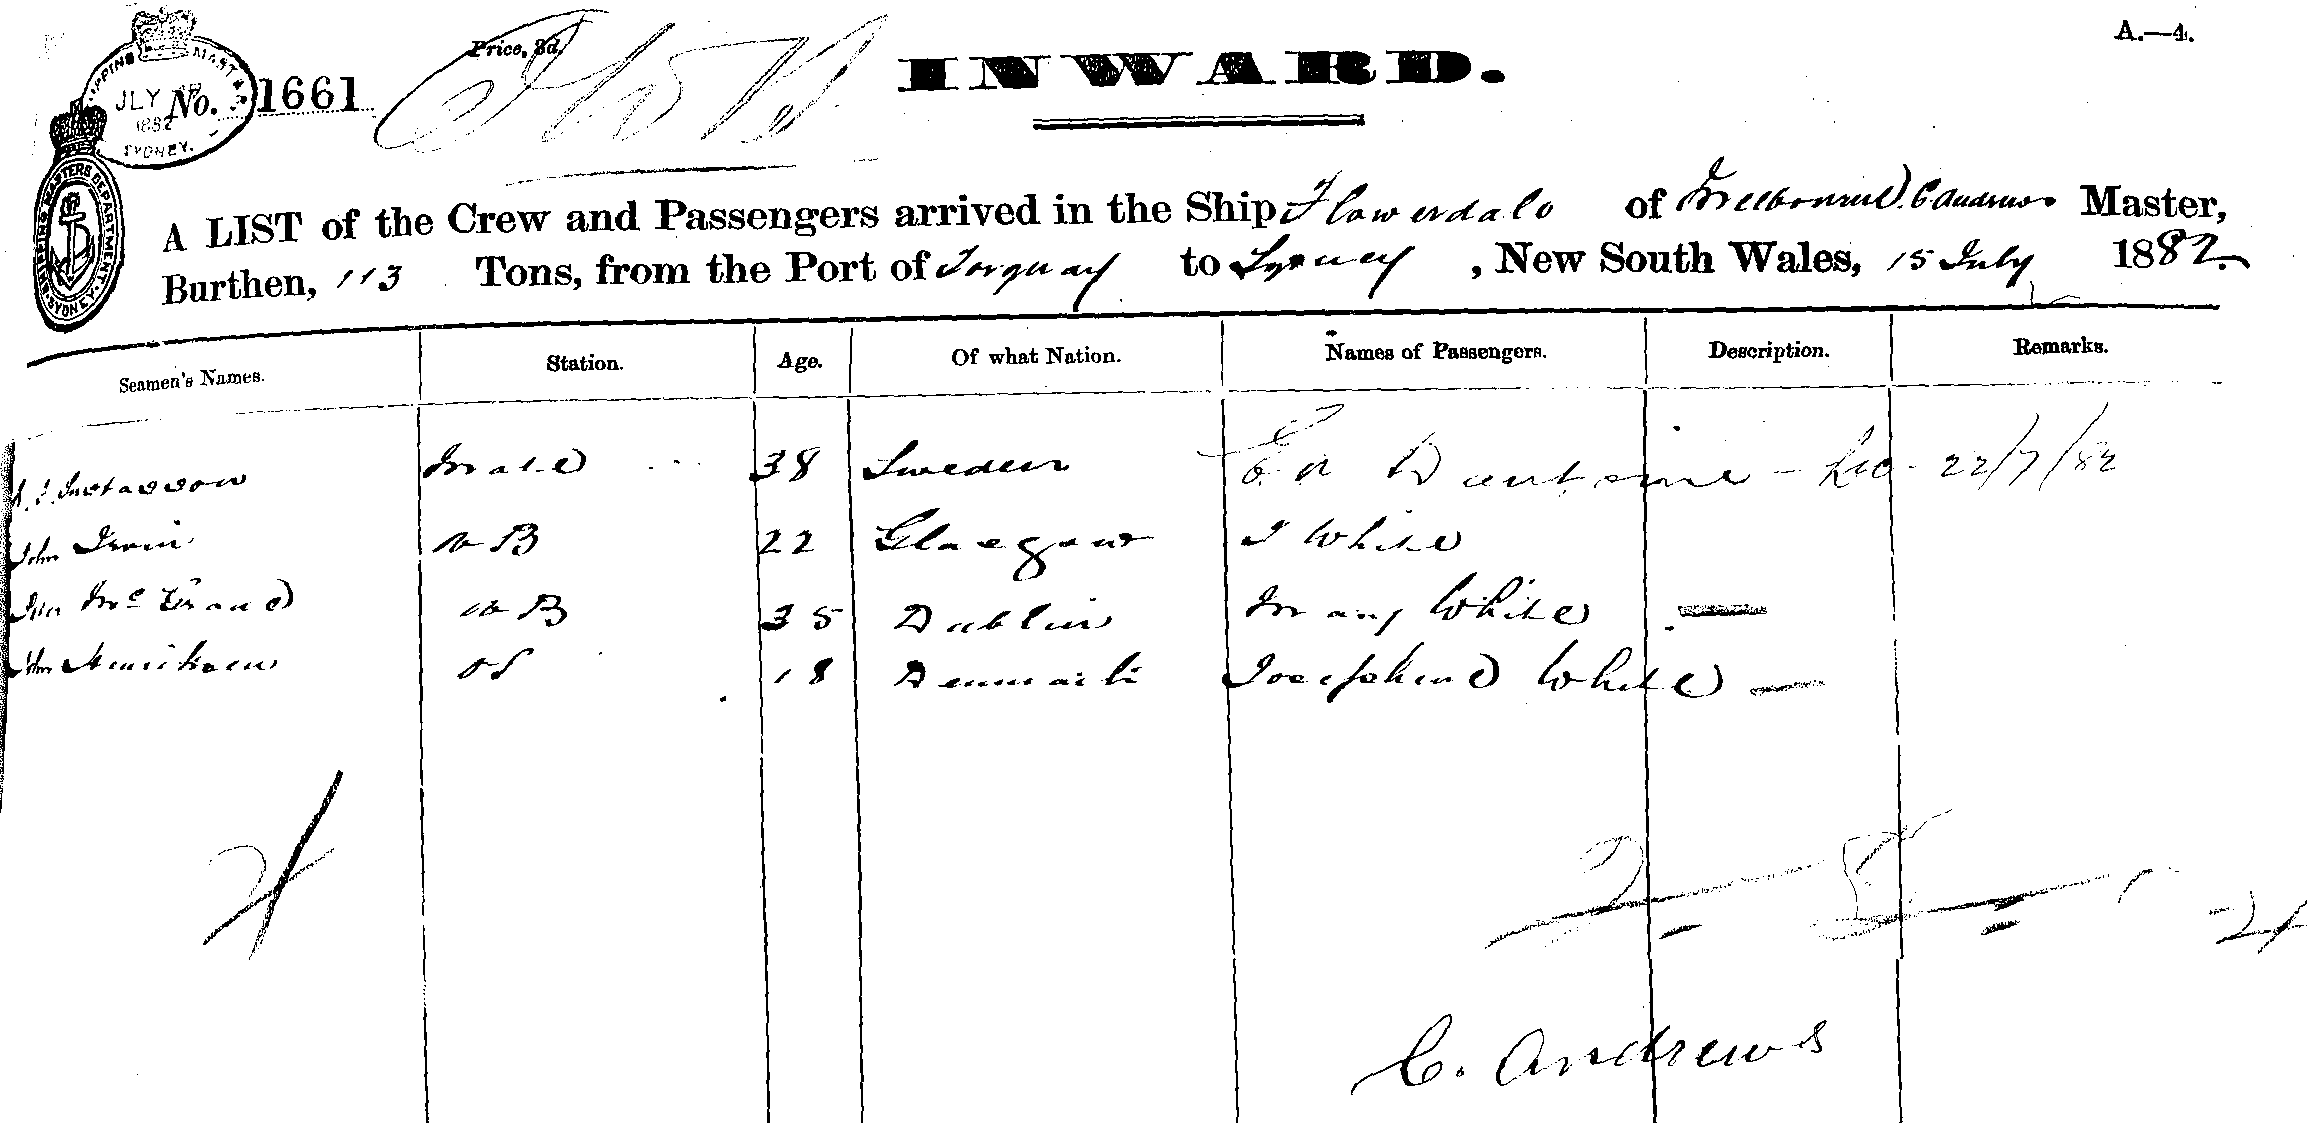 A.—4.
Price, 3d.
INWARD.
SHIPPING MASTER
JLY 17
1882
SYDNEY.
No. 1661
SHIPPING MASTERS DEPARTMENT SYDNEY
A LIST of the Crew and Passengers arrived in the Ship Flowerdale of Melbourne C Andrews Master,
Burthen, 113 Tons, from the Port of Torquay to Sydney, New South Wales, 15 July 1882.
Seamen's Names. Station. Age. Of what Nation. Names of Passengers. Description. Remarks.
Gustavson Mate 38 Sweden 22/7/82
John Irvin AB 22 Glasgow J White
AB 35 Dublin Mary White —
John Henriksen OS 18 Denmark Josephine White —
4
C. Andrews